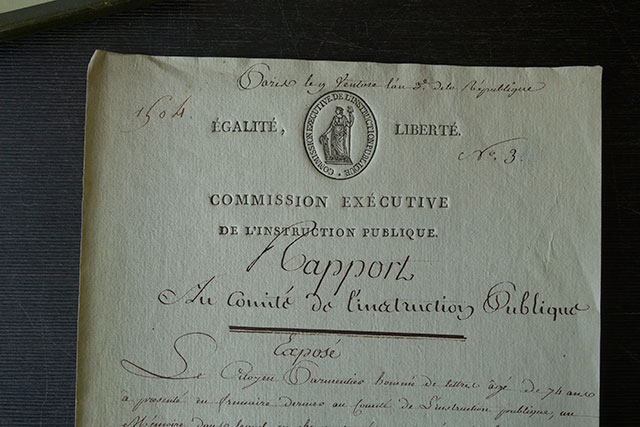 Paris le 9 Ventose l'an 3e. de la République
1504
ÉGALITÉ, LIBERTÉ.
COMMISSION EXECUTIVE DE L'INSTRUCTION PUBLIQUE
No. 3.
COMMISSION EXÉCUTIVE
DE L'INSTRUCTION PUBLIQUE.
Rapport
Au Comité de l'instruction Publique
Exposé
Le Citoyen Parmentier homme de lettres agé de 74 ans
a présenté en frimaire dernier au Comité de L'instruction publique, un
Mémoire dans lequel